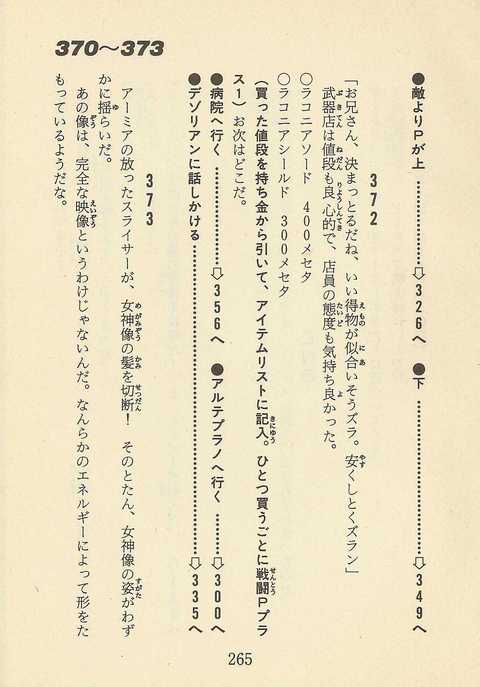 370〜373
●敵よりPが上 ………⇨326へ ●下 ………⇨349へ
372
「お兄さん、決まっとるだね、いい得物が似合いそうズラ。安くしとくズラン」
武器店は値段も良心的で、店員の態度も気持ち良かった。
○ラコニアソード 400メセタ
○ラコニアシールド 300メセタ
(買った値段を持ち金から引いて、アイテムリストに記入。ひとつ買うごとに戦闘Pプラ
ス1) お次はどこだ。
●病院へ行く ………⇨356へ ●アルテプラノへ行く ………⇨300へ
●デゾリアンに話しかける ………⇨335へ
373
アーミアの放ったスライサーが、女神像の髪を切断! そのとたん、女神像の姿がわず
かに揺らいだ。
あの像は、完全な映像というわけじゃないんだ。なんらかのエネルギーによって形をた
もっているようだな。
265